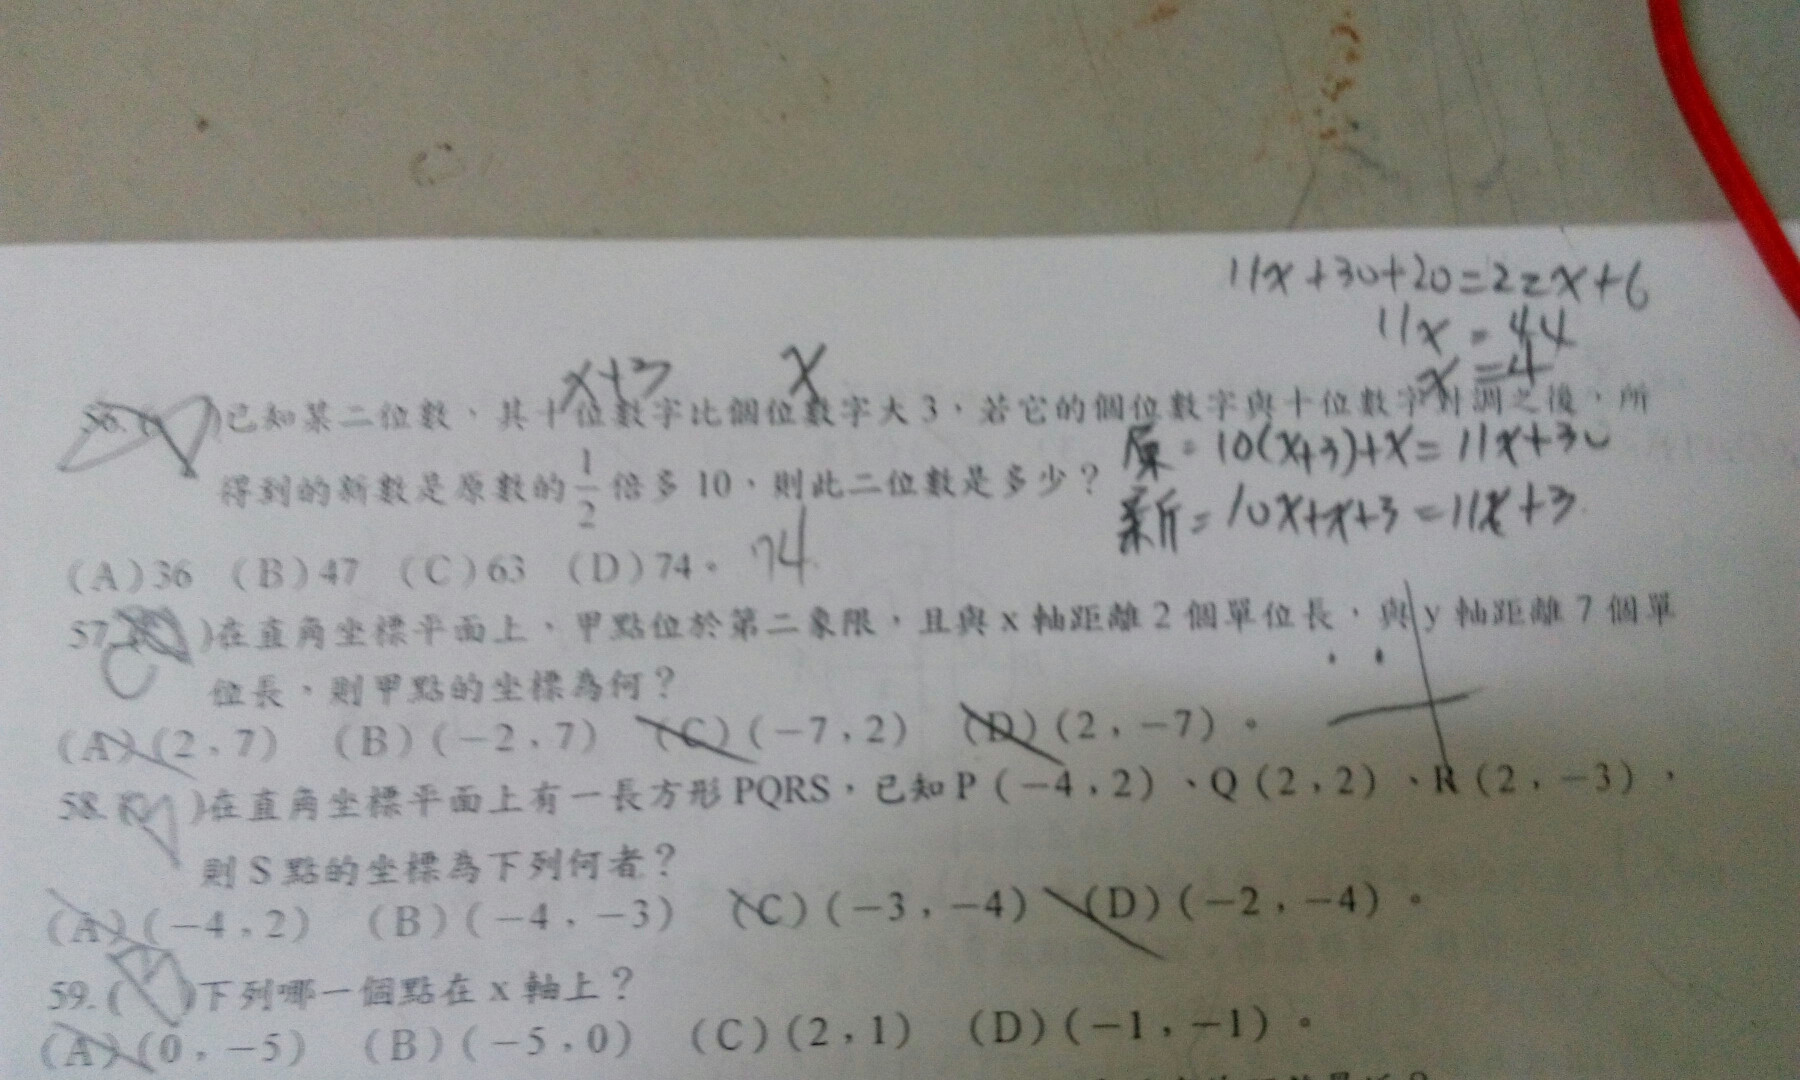 11x+30+20=22x+6
11x=44
x=4
x+3 x
56.( )已知某二位數，其十位數字比個位數字大3，若它的個位數字與十位數字對調之後，所
原=10(x+3)+x=11x+30
得到的新數是原數的1/2倍多10，則此二位數是多少？
新=10x+x+3=11x+3
(A)36 (B)47 (C)63 (D)74。 74
57.( )在直角坐標平面上，甲點位於第二象限，且與x軸距離2個單位長，與y軸距離7個單
C
位長，則甲點的坐標為何？
(A)(2,7) (B)(−2,7) (C)(−7,2) (D)(2,−7)。
58.( )在直角坐標平面上有一長方形PQRS，已知P(−4,2)、Q(2,2)、R(2,−3)，
則S點的坐標為下列何者？
(A)(−4,2) (B)(−4,−3) (C)(−3,−4) (D)(−2,−4)。
59.( )下列哪一個點在x軸上？
(A)(0,−5) (B)(−5,0) (C)(2,1) (D)(−1,−1)。